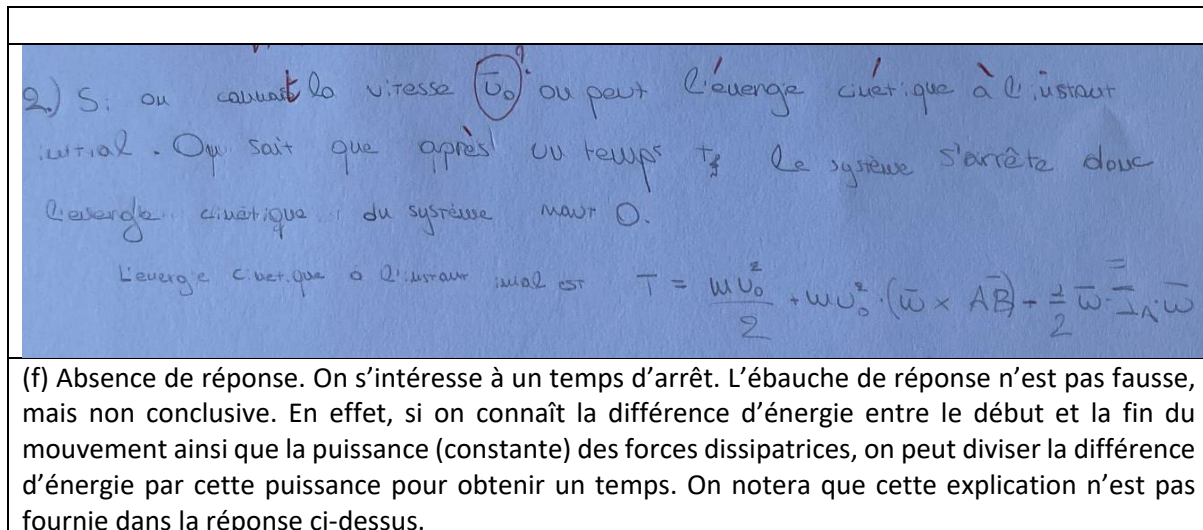 2.) Si on connait la vitesse v̄₀ ? on peut l'énergie cinétique à l'instant
initial. On sait que après un temps T_f le système s'arrête donc
l'energie cinétique du système vaut 0.
L'energie cinetique a l'instant inial est T = mv₀²/2 + mv₀²·(ω̄ × AB̄) + 1/2 ω̄·I̿_A·ω̄
(f) Absence de réponse. On s’intéresse à un temps d’arrêt. L’ébauche de réponse n’est pas fausse,
mais non conclusive. En effet, si on connaît la différence d’énergie entre le début et la fin du
mouvement ainsi que la puissance (constante) des forces dissipatrices, on peut diviser la différence
d’énergie par cette puissance pour obtenir un temps. On notera que cette explication n’est pas
fournie dans la réponse ci-dessus.